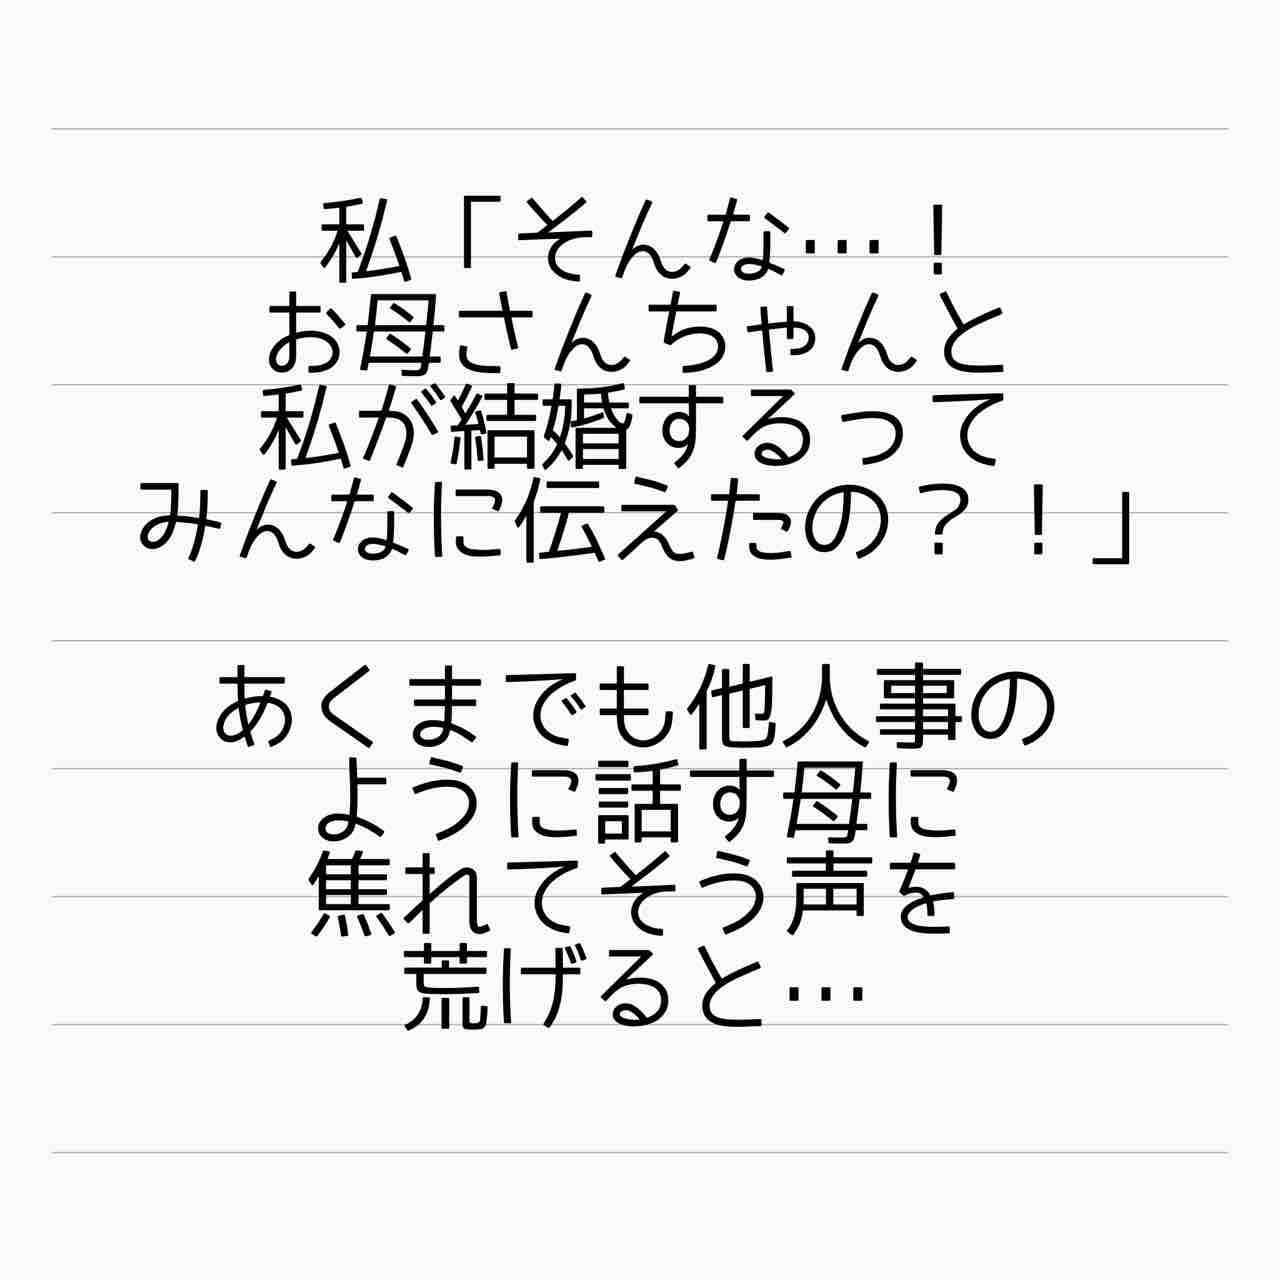 私「そんな…！
お母さんちゃんと
私が結婚するって
みんなに伝えたの？！」
あくまでも他人事の
ように話す母に
焦れてそう声を
荒げると…